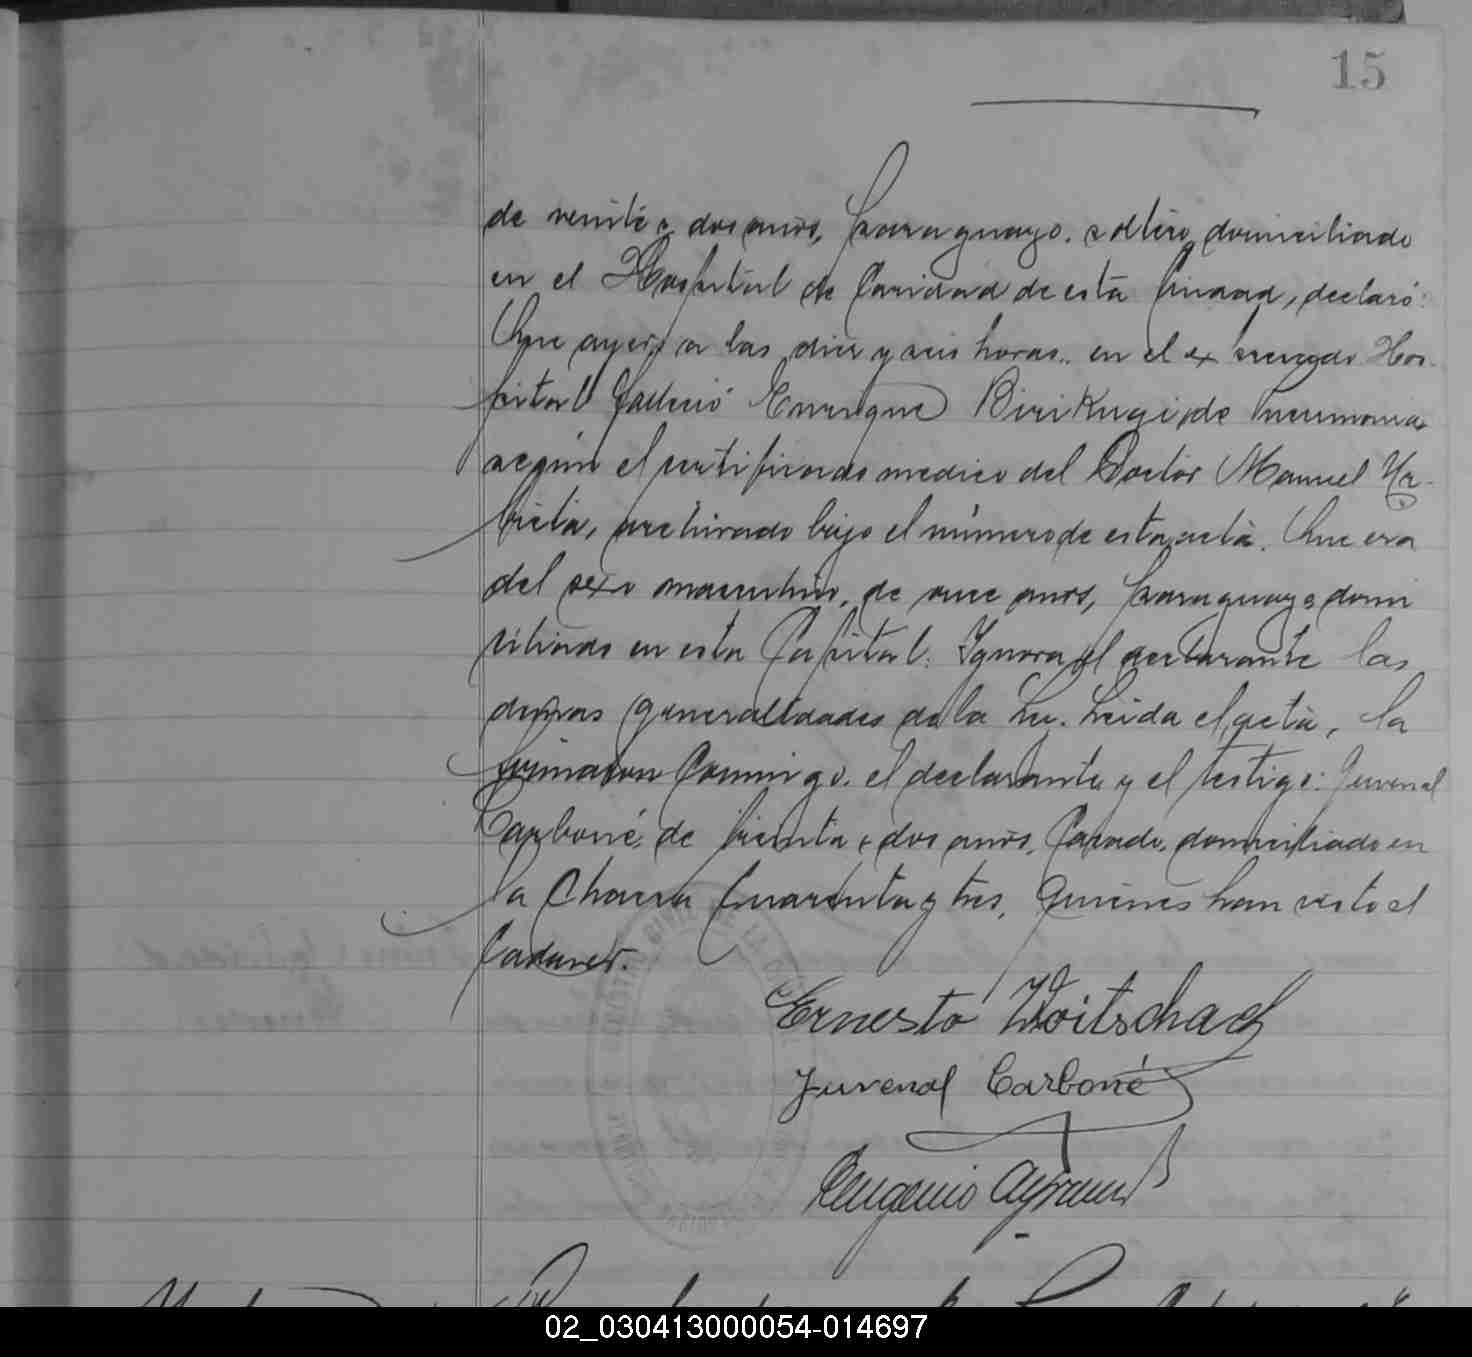 15
de veinte y dos años, paraguayo, soltero, domiciliado
en el Hospital de Caridad de esta Ciudad, declaró:
Que ayer, a las diez y seis horas, en el expresado Hos-
pital falleció Enrique BiriKugi, de Pneumonia
según el certificado medico del Doctor Manuel Ur-
bieta, archivado bajo el número de esta acta. Que era
del sexo masculino, de once años, paraguayo domi
ciliado en esta Capital. Ignora el declarante las
demas generalidades de la Ley. Leida el acta, la
firmaron Conmigo, el declarante y el testigo: Juvenal
Carboné, de treinta y dos años, Casado, domiciliado en
la Chacra Cuarenta y tres, quienes han visto el
Cadaver.
Ernesto Woitschach
Juvenal Carboné
Eugenio
02_030413000054-014697